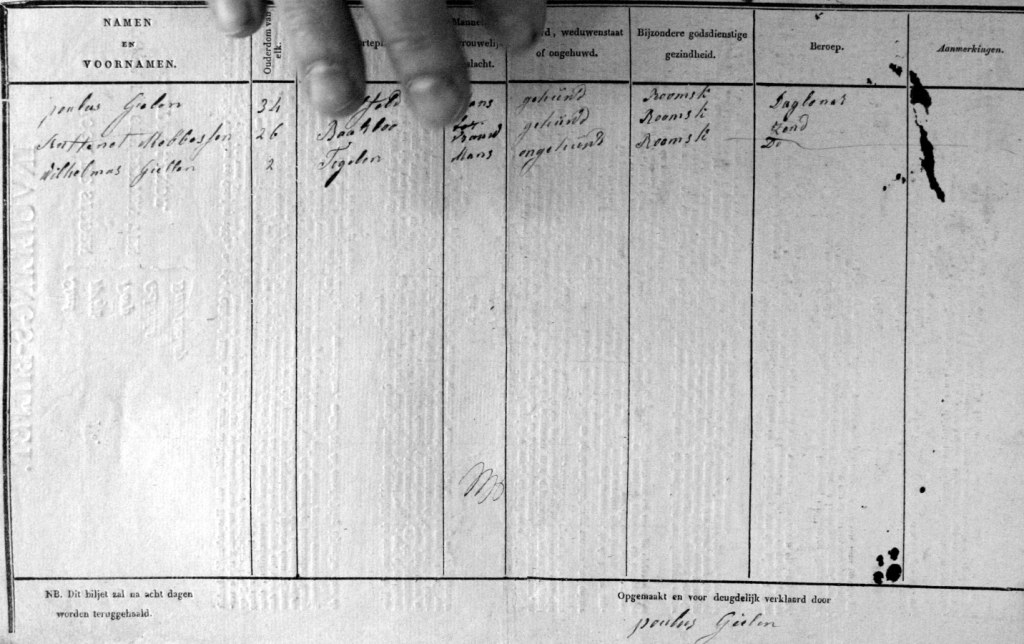 NAMEN
EN
VOORNAMEN.
Ouderdom van elk.
weduwenstaat
of ongehuwd.
Bijzondere godsdienstige
gezindheid.
Beroep.
Aanmerkingen.
poulus Gielen 34 Mans gehuūd Roomsk Daglonar
26 Baakloo gehuūd Roomsk
Wilhelmas Giellen 2 Tegelen Mans ongehuūd Roomsk Do
NB. Dit biljet zal na acht dagen
worden teruggehaald.
Opgemaakt en voor deugdelijk verklaard door
poulus Gielen